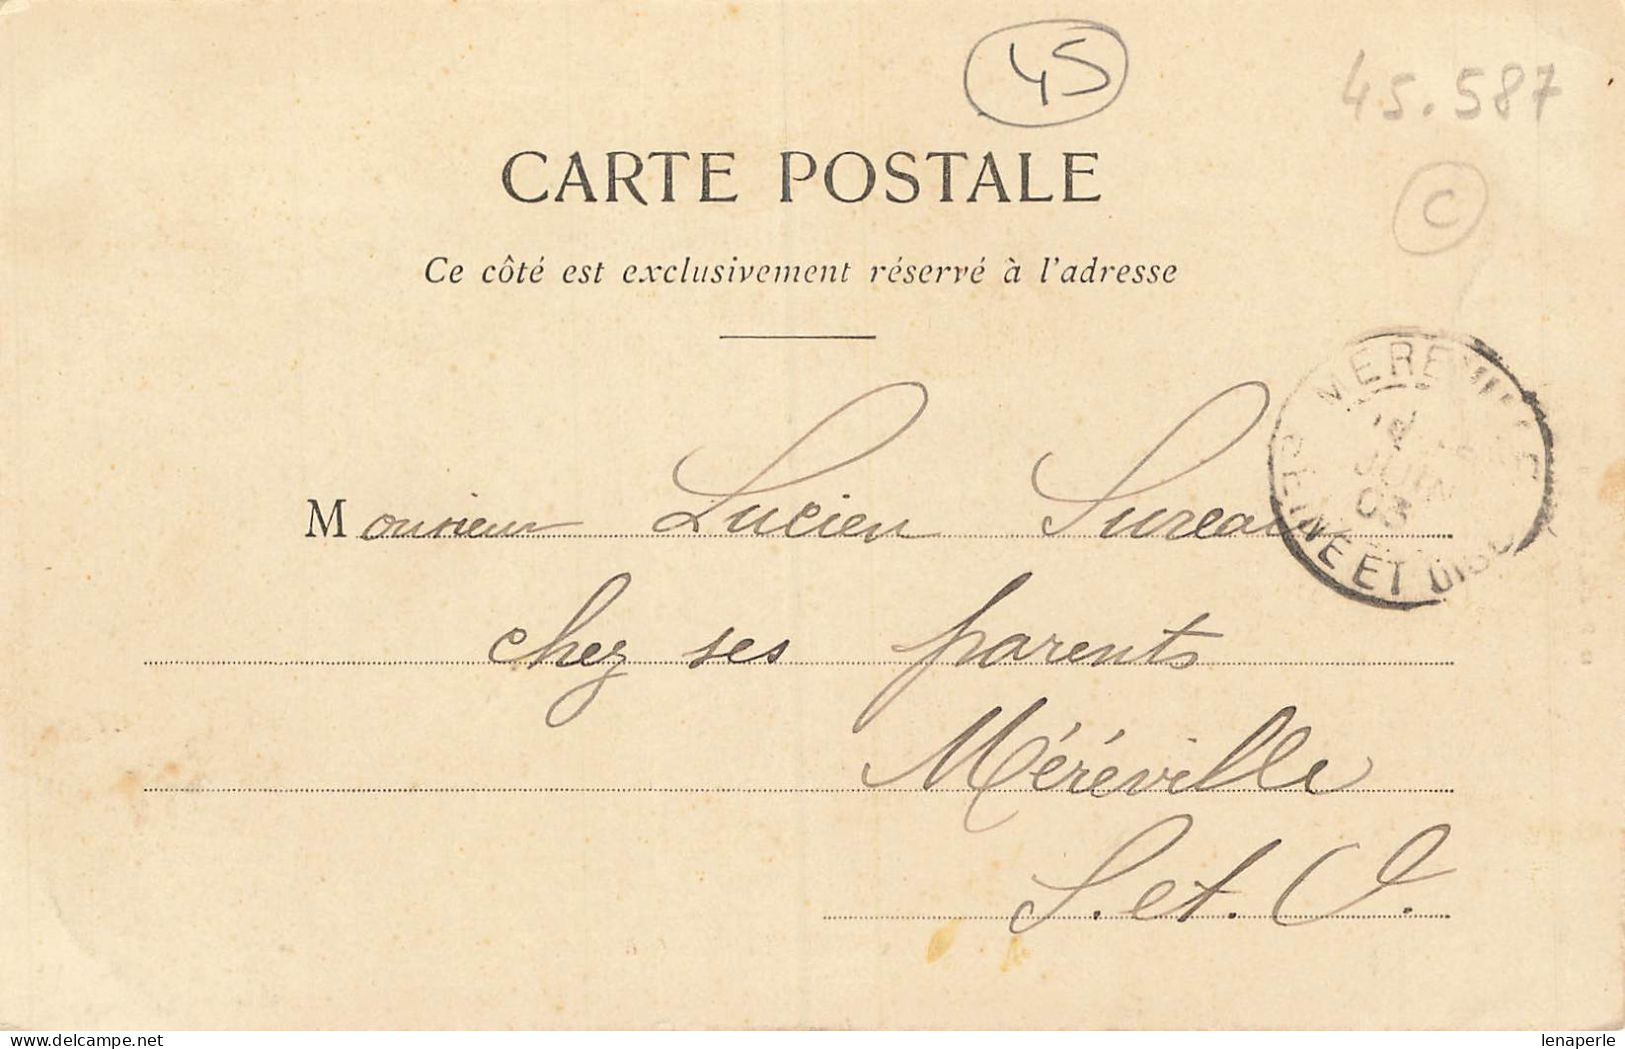 45
45.587
C
CARTE POSTALE
Ce côté est exclusivement réservé à l'adresse
MEREVILLE
JUIN
03
SEINE ET OISE
Monsieur Lucien Sureau
chez ses parents
Méréville
S. et. O.
www.delcampe.net
lenaperle